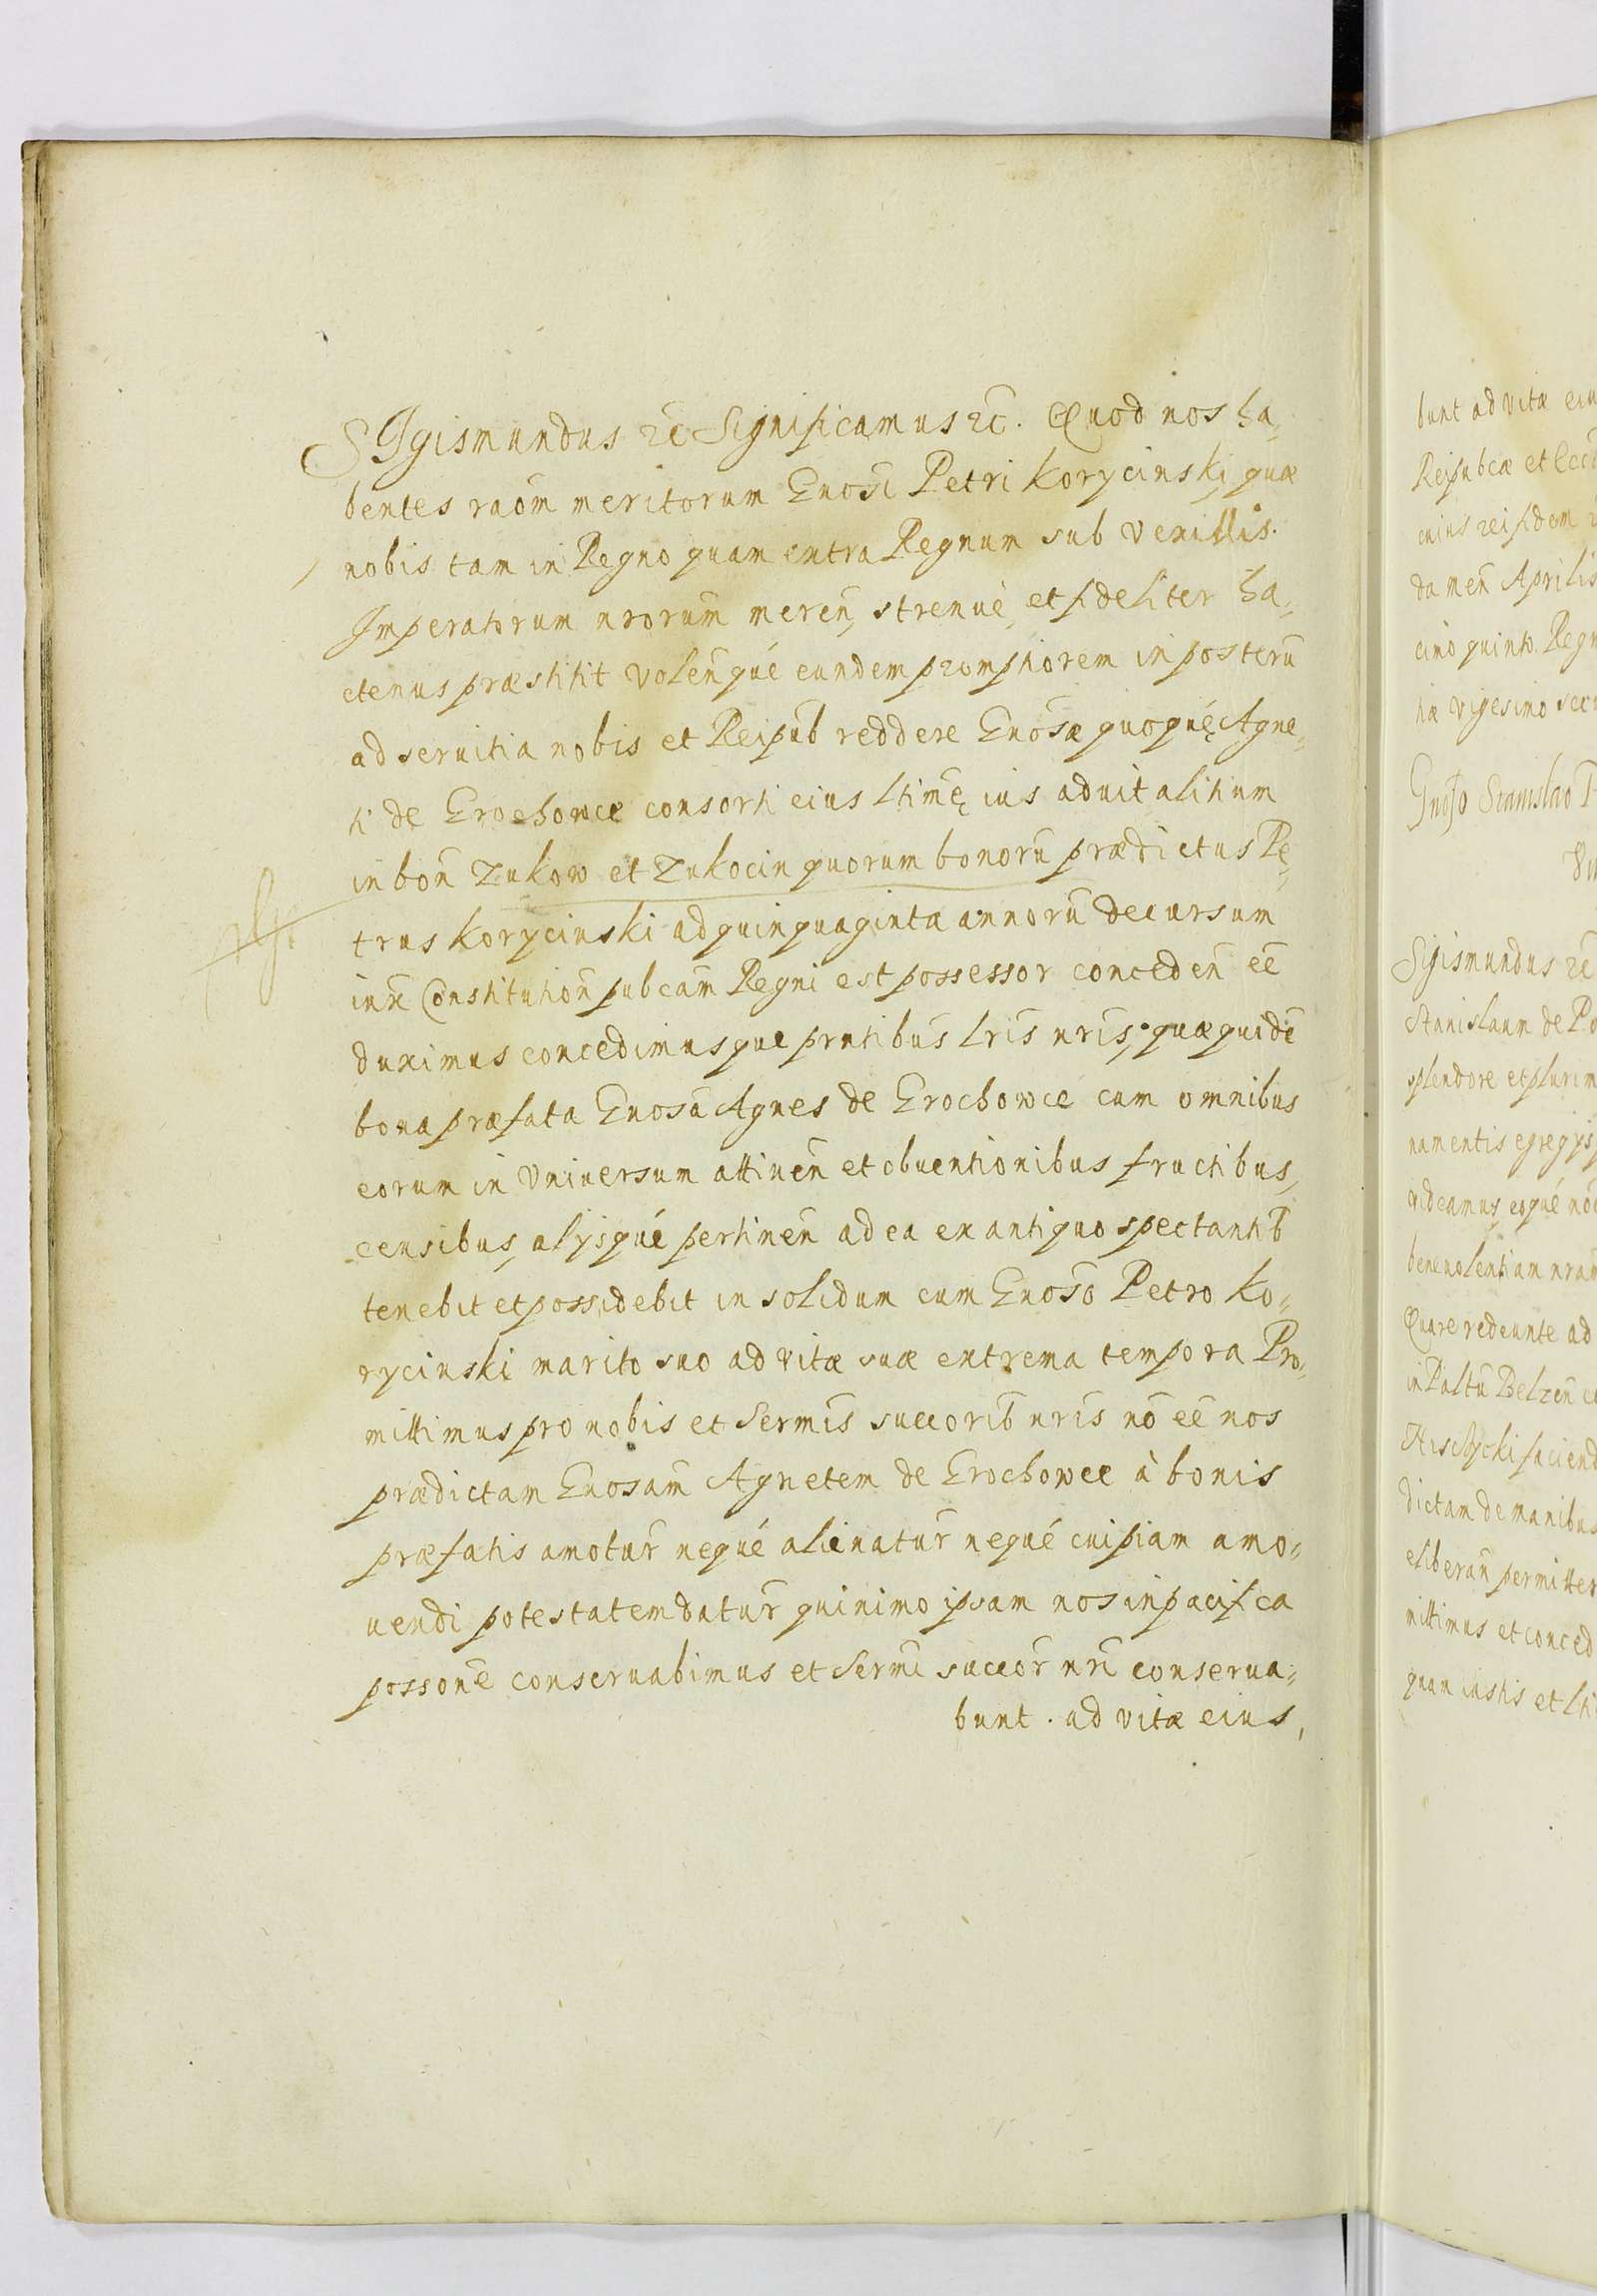 SIgismundus ꝛc̃ Significamus ꝛc̃. Quod nos ha„
bentes raõm meritorum Gnosi Petri Korycinski, quæ
nobis tam in Regno quam extra Regnum sub Vexillis.
Imperatorum nrorum̃ mereñ, strenuè, et fideliter ha„
ctenus præstitit Voleñqué eundem promptiorem in posterũ
ad seruitia nobis et Reipub̃ reddere Gnosæ quoqué Agne„
ti de Grochowce consorti eius Ltimę ius aduitalitium
in boñ Zukow et Zukocin quorum bonorũ prædictus Pe„
trus Korycinski ad quinquaginta annorũ decursum
iux̃ Constitutioñ pubcam̃ Regni est possessor concedeñ eẽ
duximus concedimusque prntibus̃ Lris̃ nris̃, quæquidẽ
bona præfata Gnosã Agnes de Grochowce cum omnibus
eorum in Vniuersum attineñ et obuentionibus fructibus,
censibus, alijsqué pertineñ ad ea ex antiquo spectantib̃
tenebit et possidebit in solidum cum Gnoso Petro Ko„
rycinski marito suo ad vitæ suæ extrema tempora Pro„
mittimus pro nobis et Sermis̃ succorib̃ nris̃ nõ eẽ nos
prædictam Gnosam̃ Agnetem de Grochowce à bonis
præfatis amotur̃ nequé alienatur̃ nequé cuipiam amo„
uendi potestatem datur̃ quinimo ipsam nos in pacifica
possonẽ conseruabimus et Sermĩ succor̃ nrĩ conserua„
bunt. ad vitæ eius,
bunt ad vitæ eiu
Reipubcæ et Ecc
cuius rei fidem
da meñ Aprilis
cimo quinto. Regn
tiæ vigesimo sec
Gnoso Stanislao
Sigismundus ꝛc̃
Stanislaum de Po
splendore et plurim
namentis egregijs
videamus, eoqué
beneuolentiam nram
Quare redeunte ad
in Paltũ Belzeñ
faciend
dictam de manibus
eliberañ permitter
mittimus et conced
quam iustis et Lti